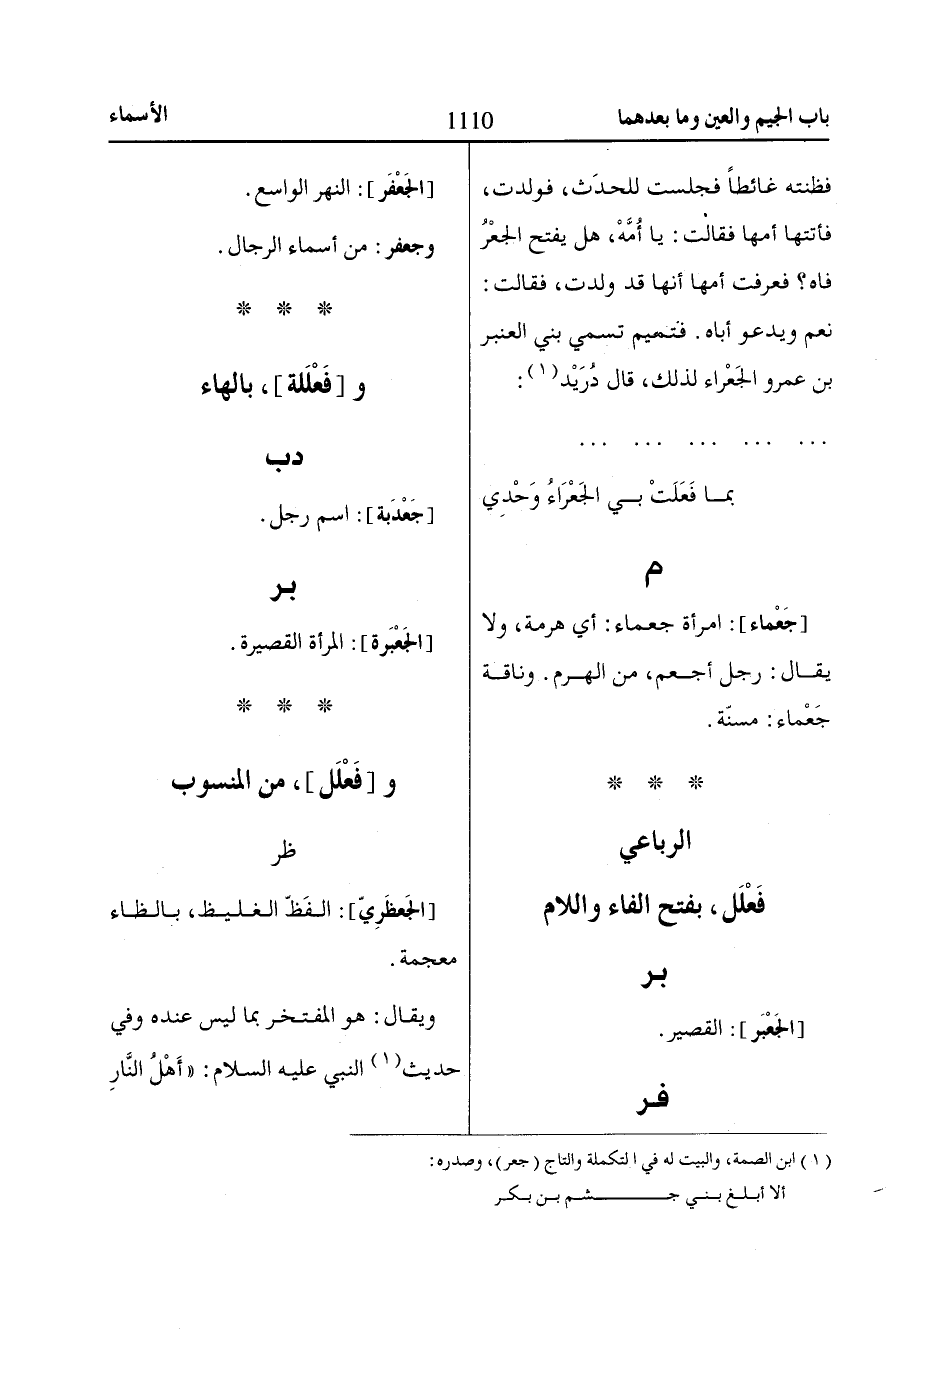 باب الجيم والعين وما بعدهما
1110
الأسماء
فظنته غائطاً فجلست للحدَث، فولدت،
فأتتها أمها فقالت: يا أُمَّهْ، هل يفتح الجعْرُ
فاه؟ فعرفت أمها أنها قد ولدت، فقالت:
نعم ويدعو أباه. فتميم تسمي بني العنبر
بن عمرو الجَعْراء لذلك، قال دُرَيْد(١):
... ... ... ... ...
بما فَعَلَتْ بي الجَعْرَاءُ وَحْدِي
م
[جَعْماء]: امرأة جعماء: أي هرمة، ولا
يقال: رجل أجعم، من الهرم. وناقة
جَعْماء: مسنّة.
* * *
الرباعي
فَعْلَل، بفتح الفاء واللام
بر
[الجَعْبَر]: القصير.
فر
[الجَعْفَر]: النهر الواسع.
وجعفر: من أسماء الرجال.
* * *
و [فَعْلَلة]، بالهاء
دب
[جَعْدَبة]: اسم رجل.
بر
[الجَعْبَرة]: المرأة القصيرة.
* * *
و [فَعْلَل]، من المنسوب
ظر
[الجَعظَرِيّ]: الفَظّ الغليظ، بالظاء
معجمة.
ويقال: هو المفتخر بما ليس عنده وفي
حديث(١) النبي عليه السلام: «أَهْلُ النَّارِ
(١) ابن الصمة، والبيت له في التكملة والتاج (جعر)، وصدره:
ألا أبلغ بني جشم بن بكر